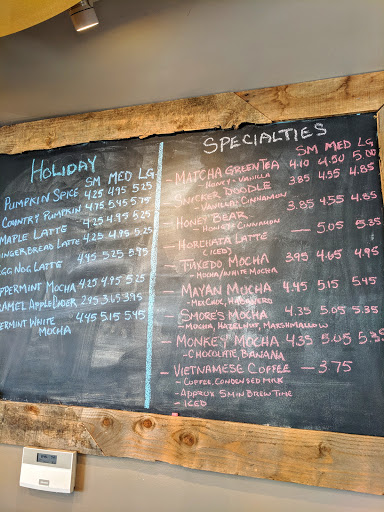 HOLIDAY
SM MED LG
PUMPKIN SPICE 4.25 4.95 5.25
COUNTRY PUMPKIN 4.75 5.45 5.75
MAPLE LATTE 4.25 4.95 5.25
INGERBREAD LATTE 4.25 4.95 5.25
GG NOG LATTE 4.95 5.25 5.95
EPPERMINT MOCHA 4.25 4.95 5.25
RAMEL APPLE CIDER 2.95 3.65 3.95
ERMINT WHITE MOCHA 4.45 5.15 5.45
SPECIALTIES
SM MED LG
- MATCHA GREEN TEA 4.10 4.50 5.00
- HONEY - VANILLA
- SNICKER DOODLE 3.85 4.55 4.85
- VANILLA, CINNAMON
- HONEY BEAR 3.85 4.55 4.85
- HONEY, CINNAMON
- HORCHATA LATTE — 5.05 5.35
(ICED)
- TUXEDO MOCHA 3.95 4.65 4.95
- MOCHA/WHITE MOCHA
- MAYAN MOCHA 4.45 5.15 5.45
- MEX CHOC, HABANERO
- SMORES MOCHA 4.35 5.05 5.35
- MOCHA, HAZELNUT, MARSHMALLOW
- MONKEY MOCHA 4.35 5.05 5.35
- CHOCOLATE, BANANA
- VIETNAMESE COFFEE — 3.75
- COFFEE, CONDENSED MILK
- APPROX 5 MIN BREW TIME
- ICED